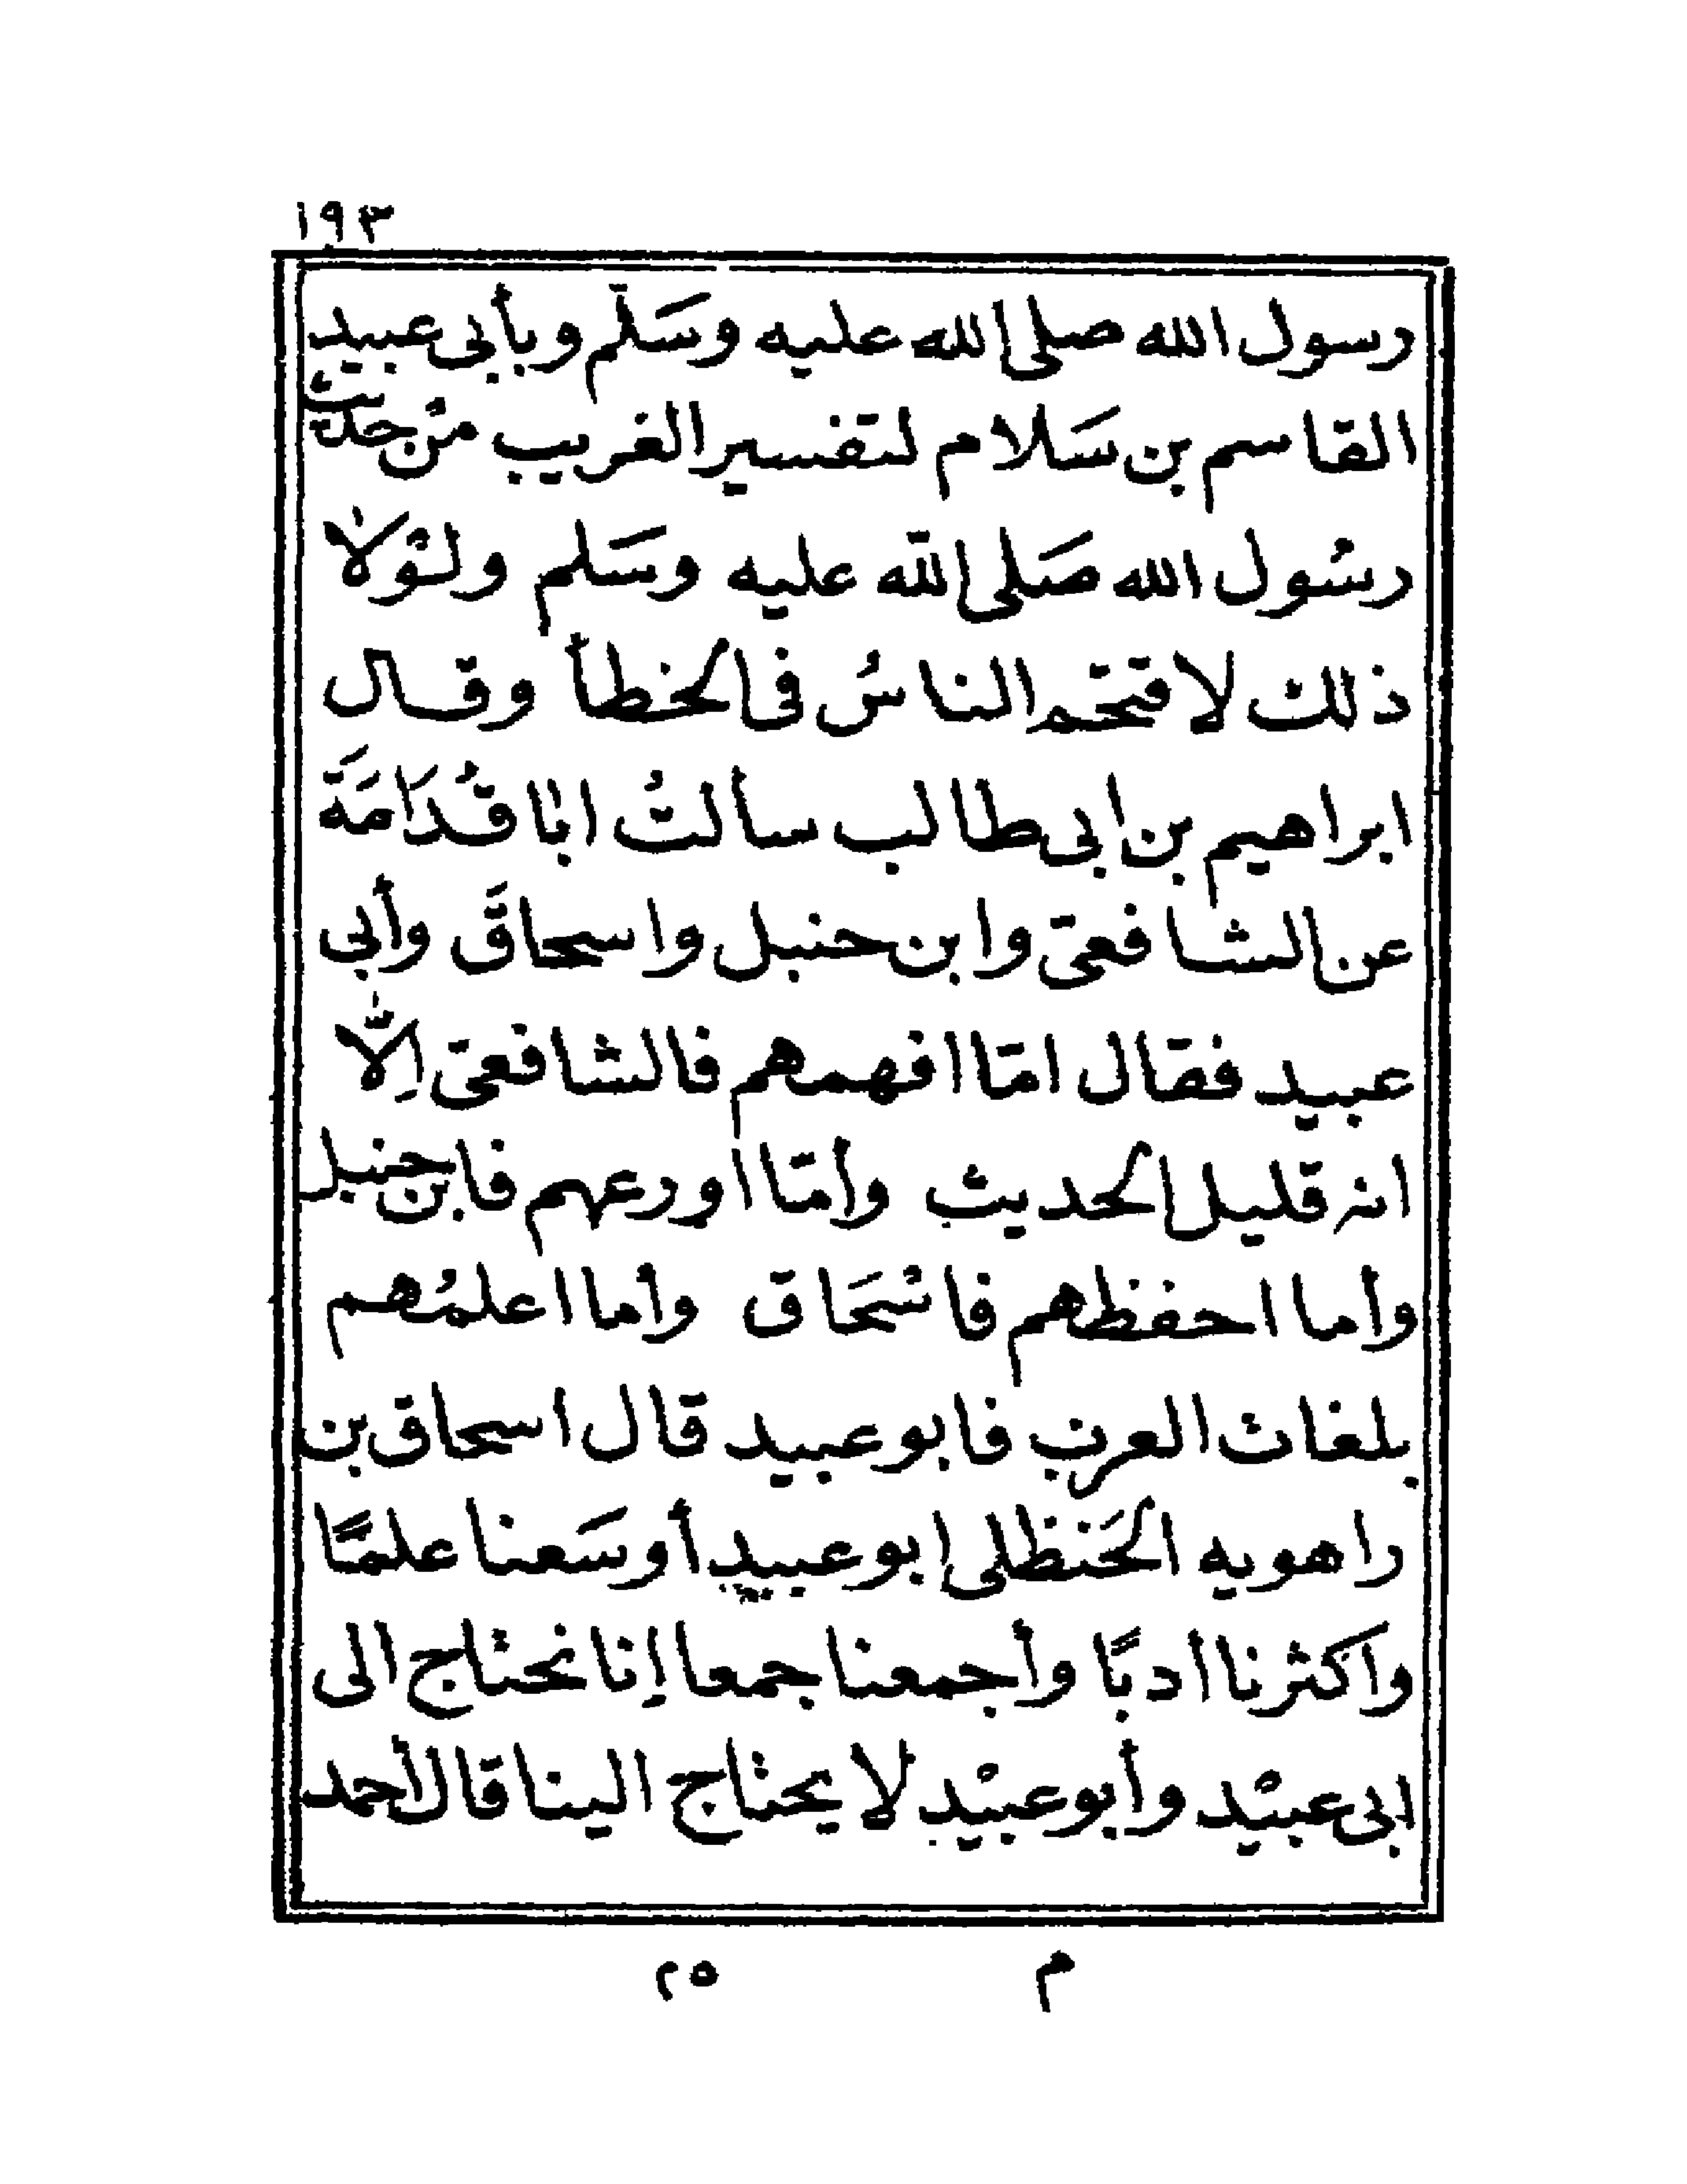 ١٩٣
رسول الله صلى الله عليه وسَلّم وبأبى عبيد
القاسم بن سَلام لتفسير الغريب منْ حديث
رسُول الله صَلى اللّه عليه وسَلم ولوْلا
ذلك لاقتحم الناسُ فى الخطأ وقال
ابراهيم بن ابى طالب سألتُ ابا قُدَامَةَ
عن الشافعىّ وابن حنبل واسحاقَ وأبى
عبيد فقال امّا افهمهم فالشافعىّ اِلّا
انه قليل الحديث وأمّا اورعهم فابن حنبل
وأما احفظهم فاسْحَاق وأما اعلمُهم
بلغات العرب فابو عبيد قال اسحاق بن
راهويه الحَنظلى ابو عبيد أوسَعنا علمًا
واكثرنا ادبًا وأجمعنا جمعا إنا نحتاج الى
ابى عبيْد وأبو عبيْد لا يحتاج الينا قال أحمد
م ٢٥